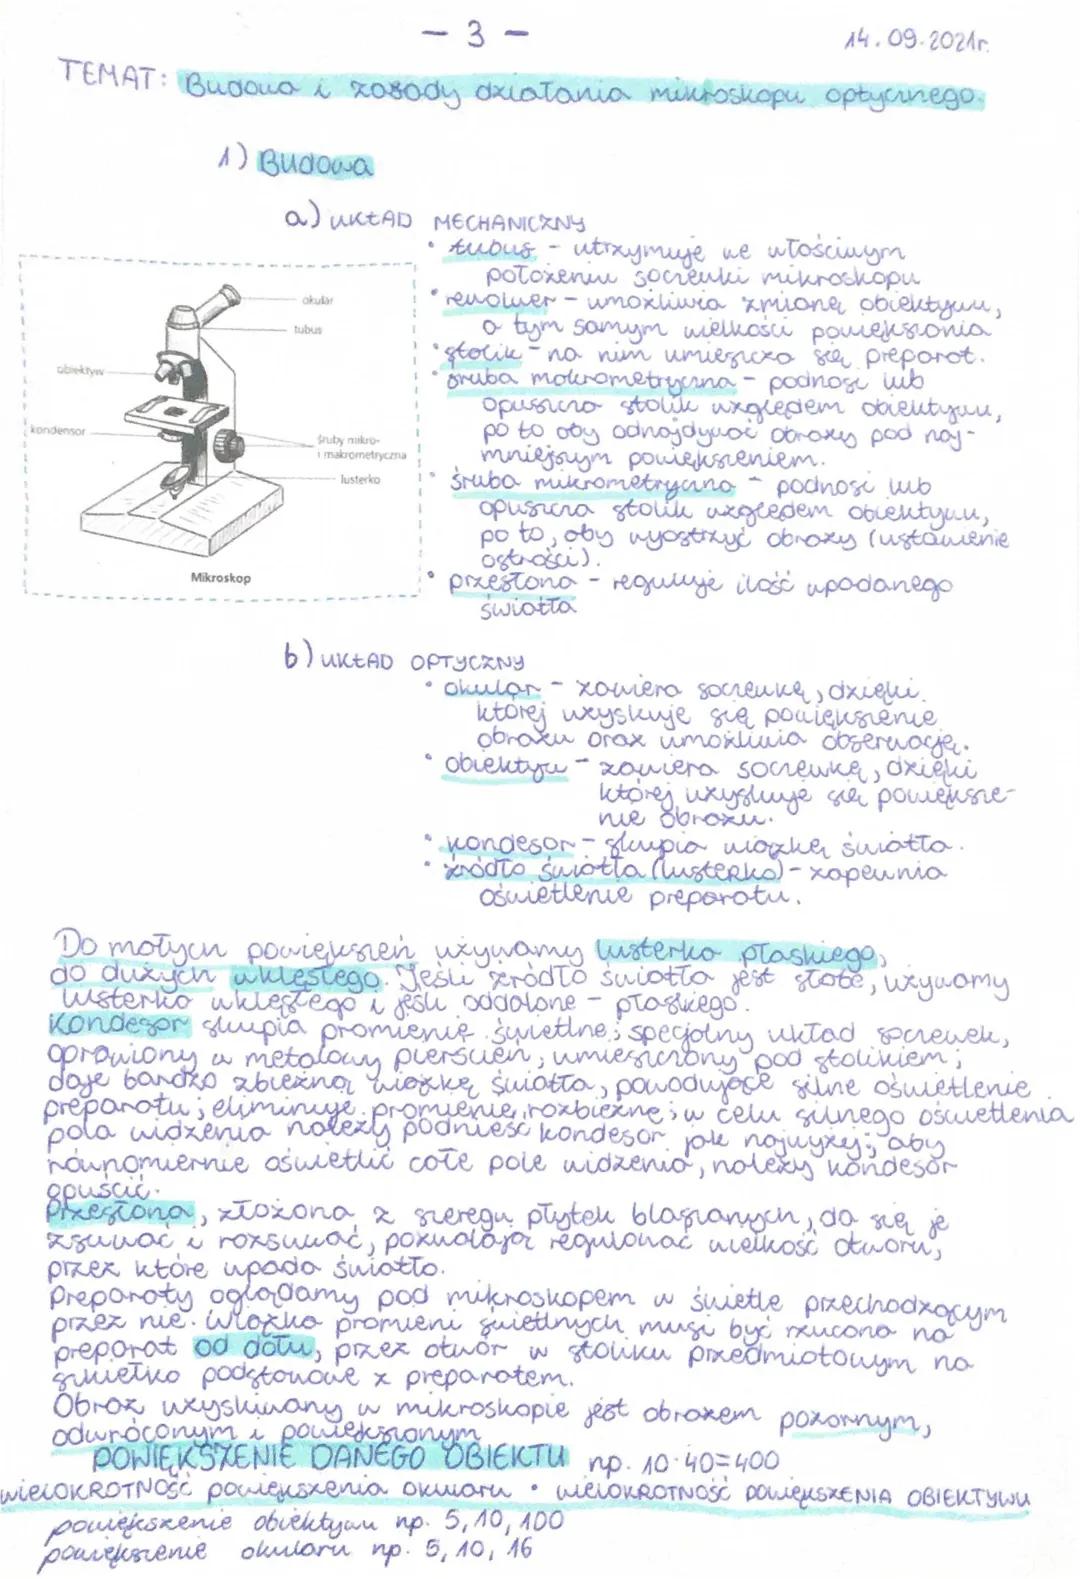 - 3 -
14.09.2021r.
TEMAT: Budowa i zasady działania mikroskopu optycznego.
1) Budowa
a) UKŁAD MECHANICZNY
• tubus - utrzymuje we właściwym
położeniu soczewki mikroskopu
• rewolwer - umożliwia zmianę obiektywu,
a tym samym wielkości powiększania
• stolik - na nim umieszcza się preparat.
• śruba makrometryczna - podnosi lub
opuszcza stolik względem obiektywu,
po to aby odnajdywać obrazy pod naj-
mniejszym powiększeniem.
• śruba mikrometryczna - podnosi lub
opuszcza stolik względem obiektywu,
po to, aby wyostrzyć obrazy (ustawienie
ostrości).
• przesłona - reguluje ilość wpadanego
światła
okular
tubus
obiektyw
kondensor
śruby mikro-
i makrometryczna
lusterko
Mikroskop
b) UKŁAD OPTYCZNY
• okular - zawiera soczewkę, dzięki
której uzyskuje się powiększenie
obrazu oraz umożliwia obserwację.
• obiektyw - zawiera soczewkę, dzięki
której uzyskuje się powiększe-
nie obrazu.
• kondesor - skupia wiązkę światła.
• źródło światła (lusterko) - zapewnia
oświetlenie preparatu.
Do małych powiększeń używamy lusterka płaskiego,
do dużych wklęsłego. Jeśli źródło światła jest słabe, używamy
lusterka wklęsłego i jeśli oddalone - płaskiego.
Kondesor skupia promienie świetlne; specjalny układ soczewek,
oprawiony w metalowy pierścień, umieszczony pod stolikiem;
daje bardzo zbieżną wiązkę światła, powodujące silne oświetlenie
preparatu; eliminuje promienie rozbieżne; w celu silnego oświetlenia
pola widzenia należy podnieść kondesor jak najwyżej; aby
równomiernie oświetlić całe pole widzenia, należy kondesor
opuścić.
Przesłona, złożona z szeregu płytek blaszanych, da się je
zsuwać i rozsuwać, pozwalają regulować wielkość otworu,
przez które wpada światło.
Preparaty oglądamy pod mikroskopem w świetle przechodzącym
przez nie. Wiązka promieni świetlnych musi być rzucona na
preparat od dołu, przez otwór w stoliku przedmiotowym na
szkiełko podstawowe z preparatem.
Obraz uzyskiwany w mikroskopie jest obrazem pozornym,
odwróconym i powiększonym
POWIĘKSZENIE DANEGO OBIEKTU np. 10·40=400
WIELOKROTNOŚĆ powiększenia okularu • WIELOKROTNOŚĆ POWIĘKSZENIA OBIEKTYWU
powiększenie obiektywu np. 5, 10, 100
powiększenie okularu np. 5, 10, 16